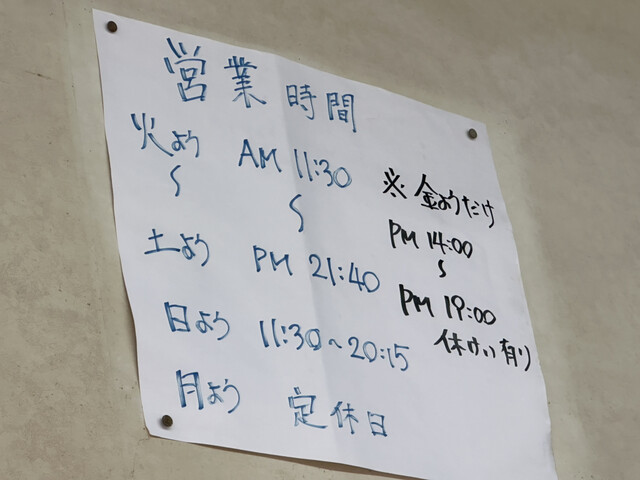 営業時間
火よう AM 11:30
〜 〜
土よう PM 21:40
日よう 11:30~20:15
月よう 定休日
※金ようだけ
PM 14:00
〜
PM 19:00
休けい有り